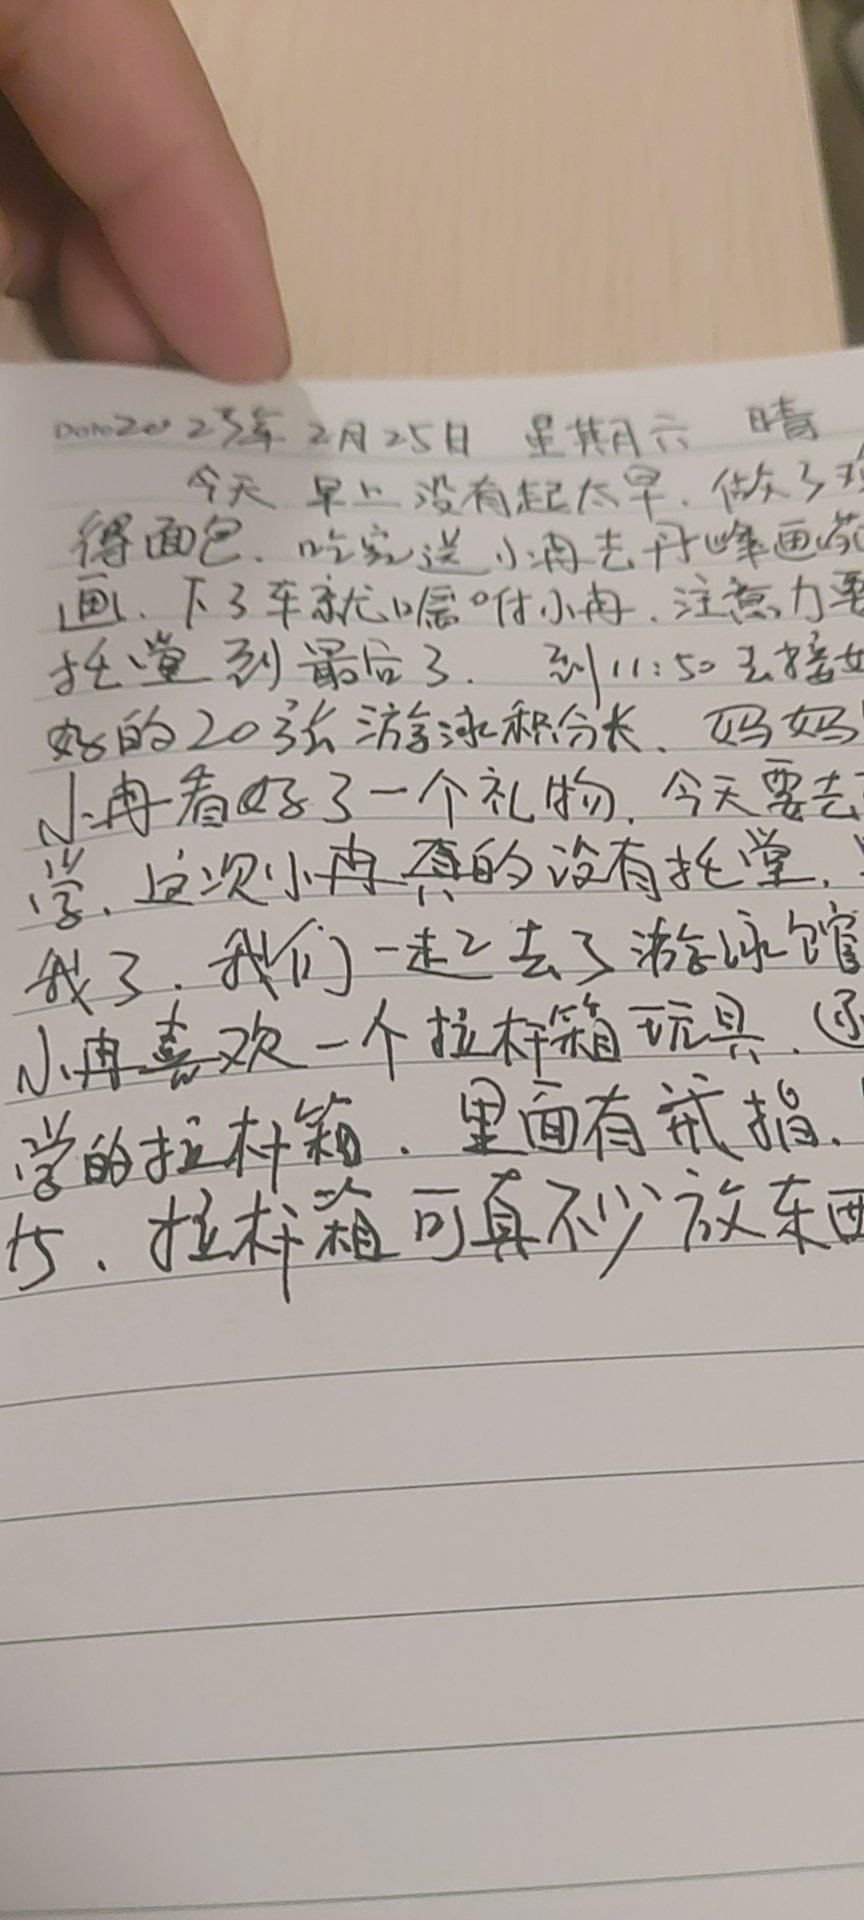 Date 2023年 2月25日 星期六 晴
今天 早上没有起太早.做了
得面包.吃完送小冉去丹峰画
画.下了车就嘱咐小冉.注意力要
拖堂到最后了. 到11:50去接
好的20张游泳积分长.妈妈
小冉看好了一个礼物.今天要去
学.这次小冉真的没有拖堂.
我了.我们一起去了游泳馆
小冉喜欢一个拉杆箱玩具.还
学的拉杆箱.里面有戒指.
巧.拉杆箱可真不少放东西